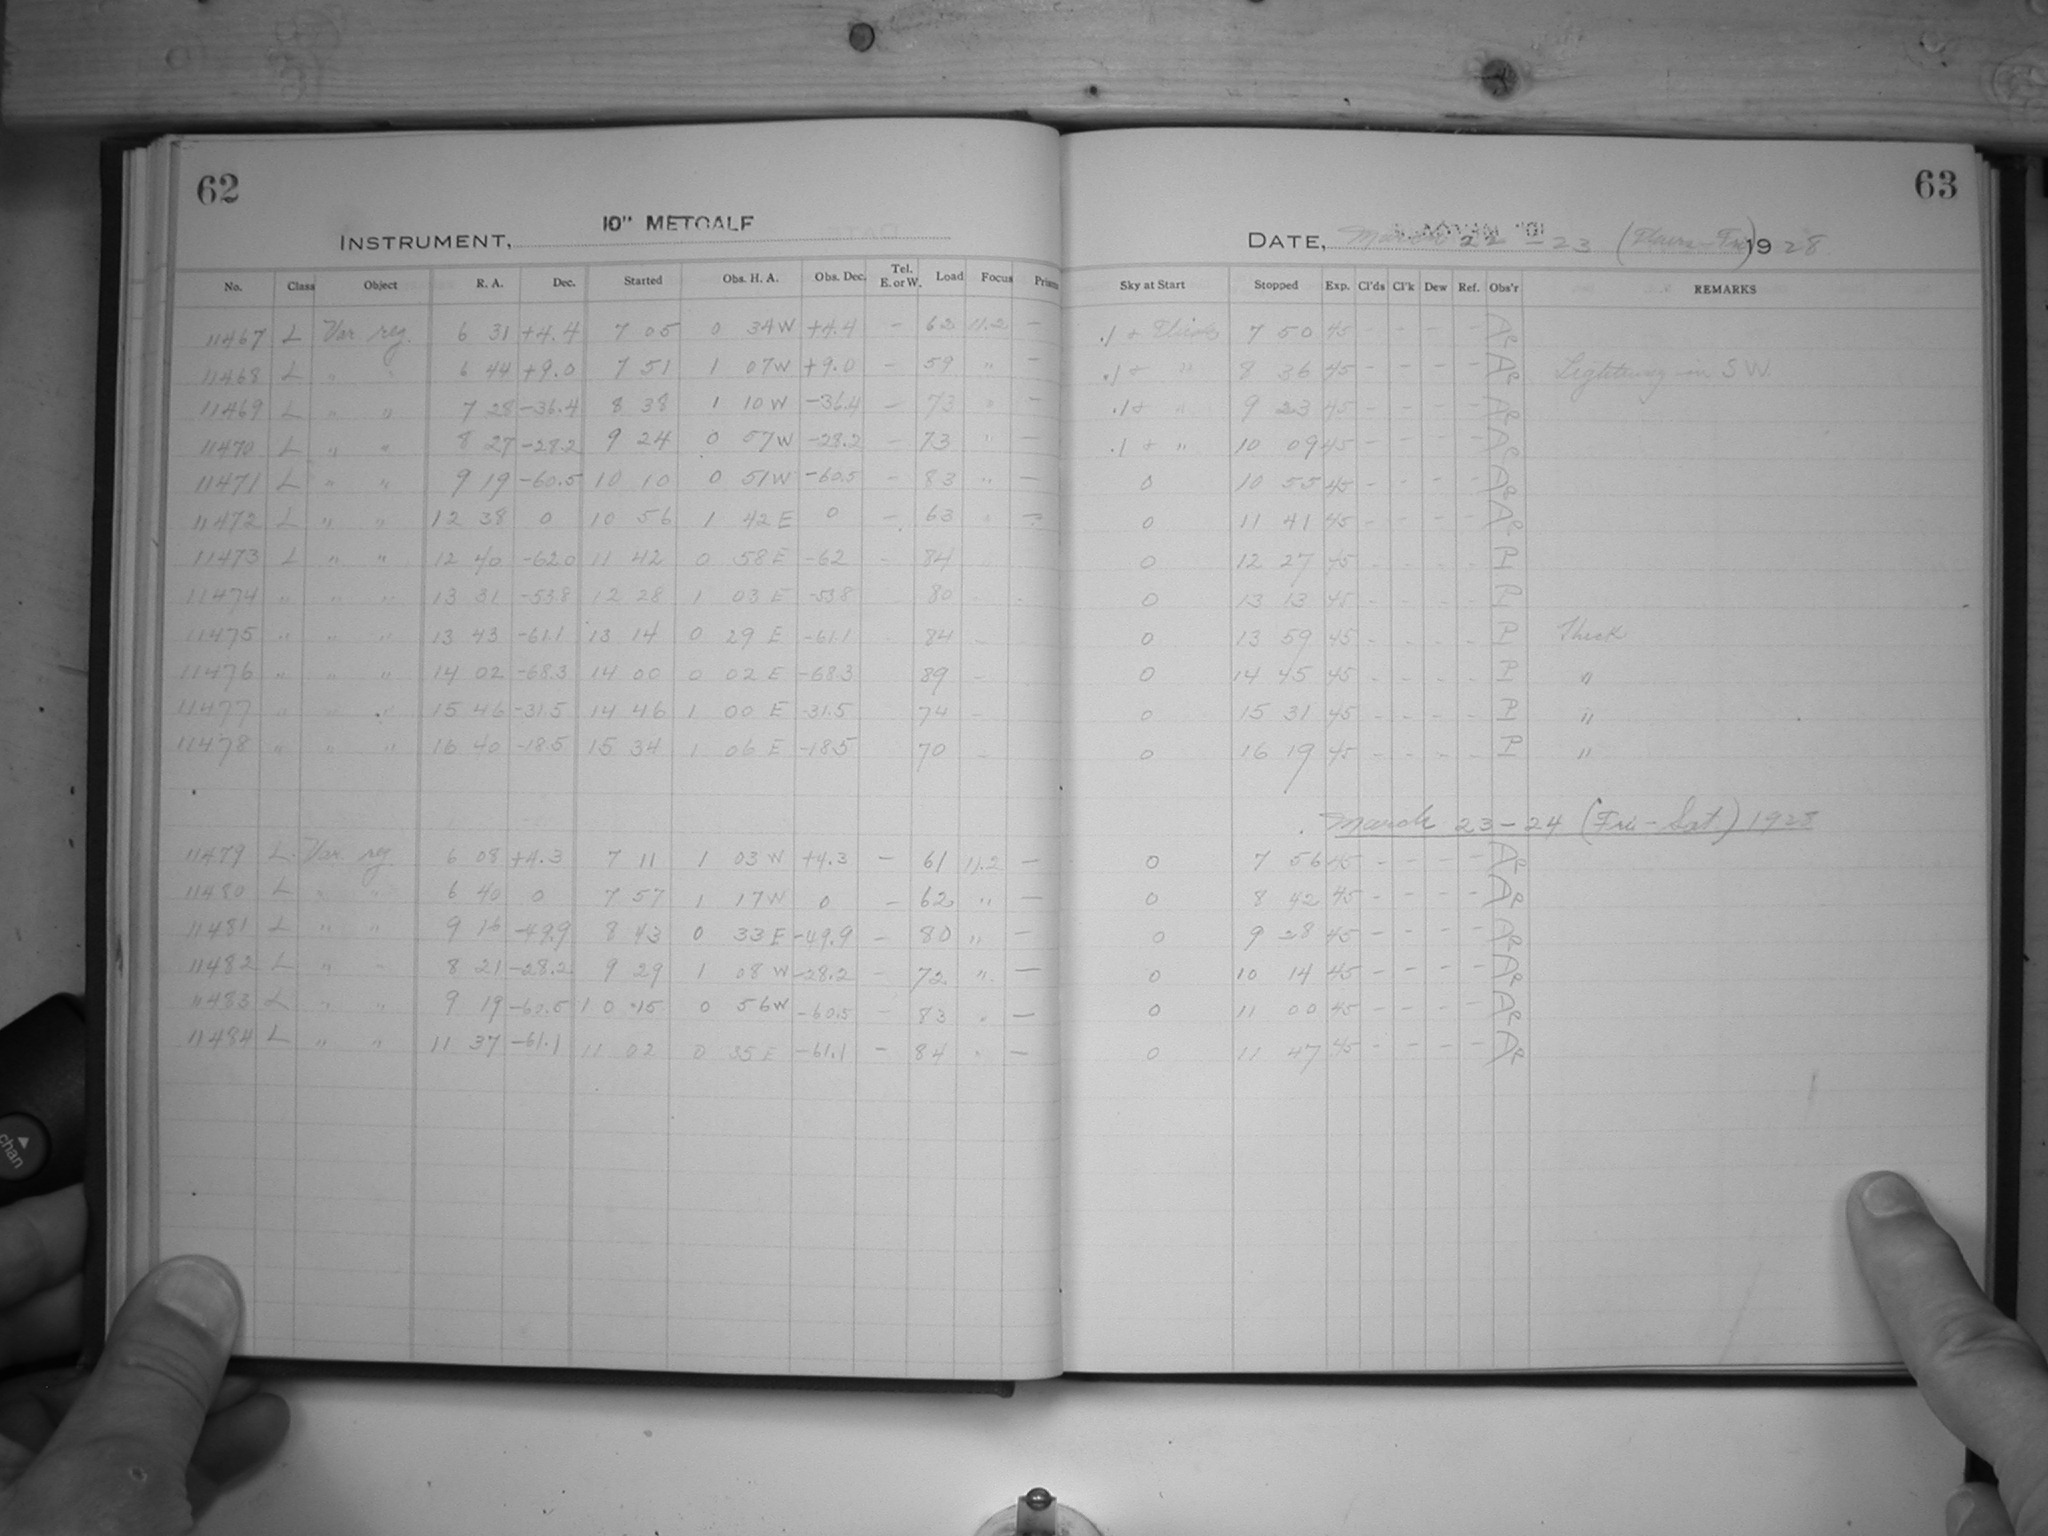 62
INSTRUMENT, 10" METCALF
No. Class Object R. A. Dec. Started Obs. H. A. Obs. Dec. Tel. E. or W. Load Focus Prism
11467 L Var reg. 6 31 +4.4 7 05 0 34 W +4.4 - 62 11.2 -
11468 L " " 6 44 +9.0 7 51 1 07 W +9.0 - 59 " -
11469 L " " 7 28 -36.4 8 38 1 10 W -36.4 - 73 " -
11470 L " " 8 27 -28.2 9 24 0 57 W -28.2 - 73 " -
11471 L " " 9 19 -60.5 10 10 0 51 W -60.5 - 83 " -
11472 L " " 12 38 0 10 56 1 42 E 0 - 63 " -
11473 L " " 12 40 -62.0 11 42 0 58 E -62 - 84
11474 " " " 13 31 -53.8 12 28 1 03 E -53.8 80 - -
11475 " " " 13 43 -61.1 13 14 0 29 E -61.1 - 84 -
11476 " " " 14 02 -68.3 14 00 0 02 E -68.3 89 -
11477 " " " 15 46 -31.5 14 46 1 00 E -31.5 74 -
11478 " " " 16 40 -18.5 15 34 1 06 E -18.5 70 -
11479 L. Var. reg 6 08 +4.3 7 11 1 03 W +4.3 - 61 11.2 -
11480 L " " 6 40 0 7 57 1 17 W 0 - 62 " -
11481 L " " 9 16 -49.9 8 43 0 33 E -49.9 - 80 " -
11482 L " " 8 21 -28.2 9 29 1 08 W -28.2 - 72 " -
11483 L " " 9 19 -60.5 10 15 0 56 W -60.5 - 83 " -
11484 L " " 11 37 -61.1 11 02 0 35 E -61.1 - 84 " -
63
DATE, March 22-23 (Thurs-Fri) 1928
Sky at Start Stopped Exp. Cl'ds Cl'k Dew Ref. Obs'r REMARKS
.1 + Thick 7 50 45 - - - - Ap
.1 + " 8 36 45 - - - - Ap Lightning in SW
.1 + " 9 23 45 - - - - Ap
.1 + " 10 09 45 - - - - Ap
0 10 55 45 - - - - Ap
0 11 41 45 - - - - Ap
0 12 27 45 - - - - P
0 13 13 45 - - - - P
0 13 59 45 - - - - P Thick
0 14 45 45 - - - - P "
0 15 31 45 - - - - P "
0 16 19 45 - - - - P "
March 23-24 (Fri-Sat) 1928
0 7 56 45 - - - - Ap
0 8 42 45 - - - - Ap
0 9 28 45 - - - - Ap
0 10 14 45 - - - - Ap
0 11 00 45 - - - - Ap
0 11 47 45 - - - - Ap
chan